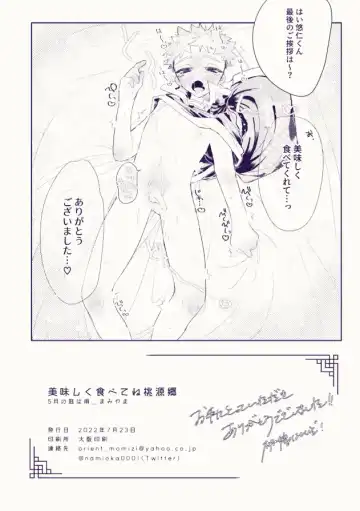 はい悠仁くん
最後のご挨拶は～?
美味しく
食べてくれて…っ
ありがとう
ございました…♡
美味しく食べてね桃源郷
発行日 2022年7月23日
印刷所 大阪印刷
連絡先 orient_momizi@yahoo.co.jp
@namioka0001(Twitter)
お手にとっていただき
ありがとうございました!!